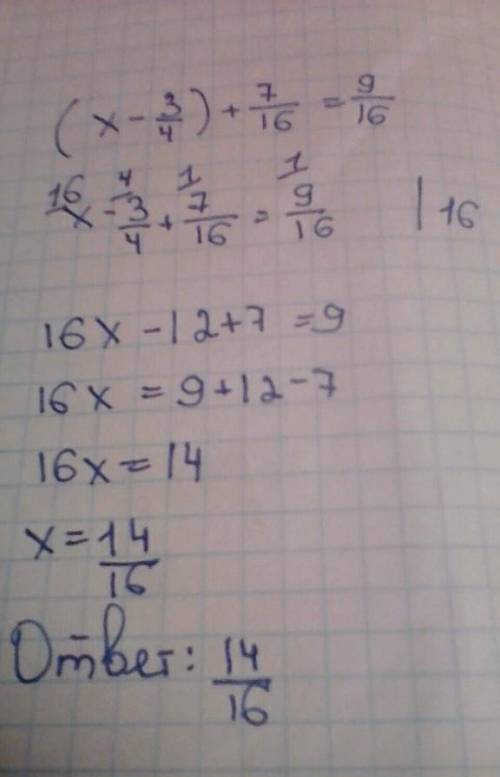 (x - 3/4) + 7/16 = 9/16
16 4 1 1
x - 3/4 + 7/16 = 9/16 | 16
16x - 12 + 7 = 9
16x = 9 + 12 - 7
16x = 14
x = 14/16
Ответ: 14/16